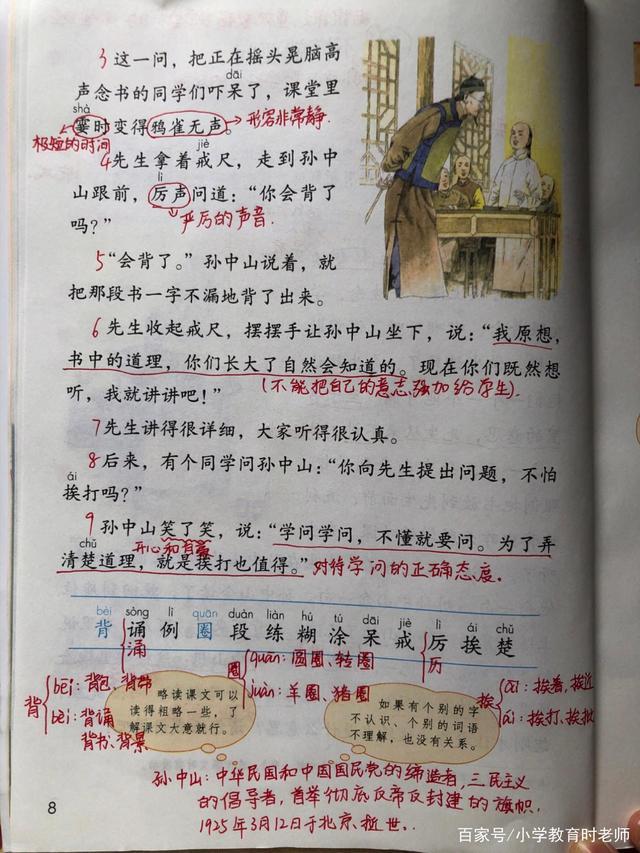 3 这一问，把正在摇头晃脑高
dāi
声念书的同学们吓呆了，课堂里
shà
霎时变得鸦雀无声。形容非常静.
极短的时间
jiè
4 先生拿着戒尺，走到孙中
lì
山跟前，厉声问道：“你会背了
吗？”
严厉的声音.
5 “会背了。”孙中山说着，就
把那段书一字不漏地背了出来。
6 先生收起戒尺，摆摆手让孙中山坐下，说：“我原想，
书中的道理，你们长大了自然会知道的。现在你们既然想
听，我就讲讲吧！”
(不能把自己的意志强加给学生).
7 先生讲得很详细，大家听得很认真。
8 后来，有个同学问孙中山：“你向先生提出问题，不怕
ái
挨打吗？”
9 孙中山笑了笑，说：“学问学问，不懂就要问。为了弄
chǔ
清楚道理，就是挨打也值得。”对待学问的正确态度.
bèi sòng lì quān duàn liàn hú tú dāi jiè lì ái chǔ
背 诵 例 圈 段 练 糊 涂 呆 戒 厉 挨 楚
涌
历
圈
quān: 圆圈、转圈
juàn: 羊圈、猪圈
背
bēi: 背包、背带
bèi: 背诵
背书、背景
略读课文可以
读得粗略一些，了
解课文大意就行。
如果有个别的字
不认识、个别的词语
不理解，也没有关系。
挨
āi: 挨着、挨近
ái: 挨打、挨批
孙中山: 中华民国和中国国民党的缔造者, 三民主义
的倡导者, 首举彻底反帝反封建的旗帜.
1925年3月12日于北京逝世.
8
百家号/小学教育时老师